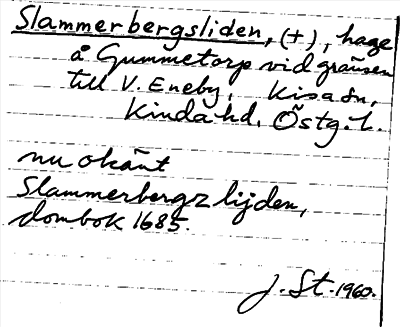 Slammerbergsliden, (+), hage
å Gummetorp vid gränsen
till V. Eneby. Kisa sn,
Kinda hd. Östg. l.
nu okänt
Slammerbergz lijden,
dombok 1685.
J. St. 1960.